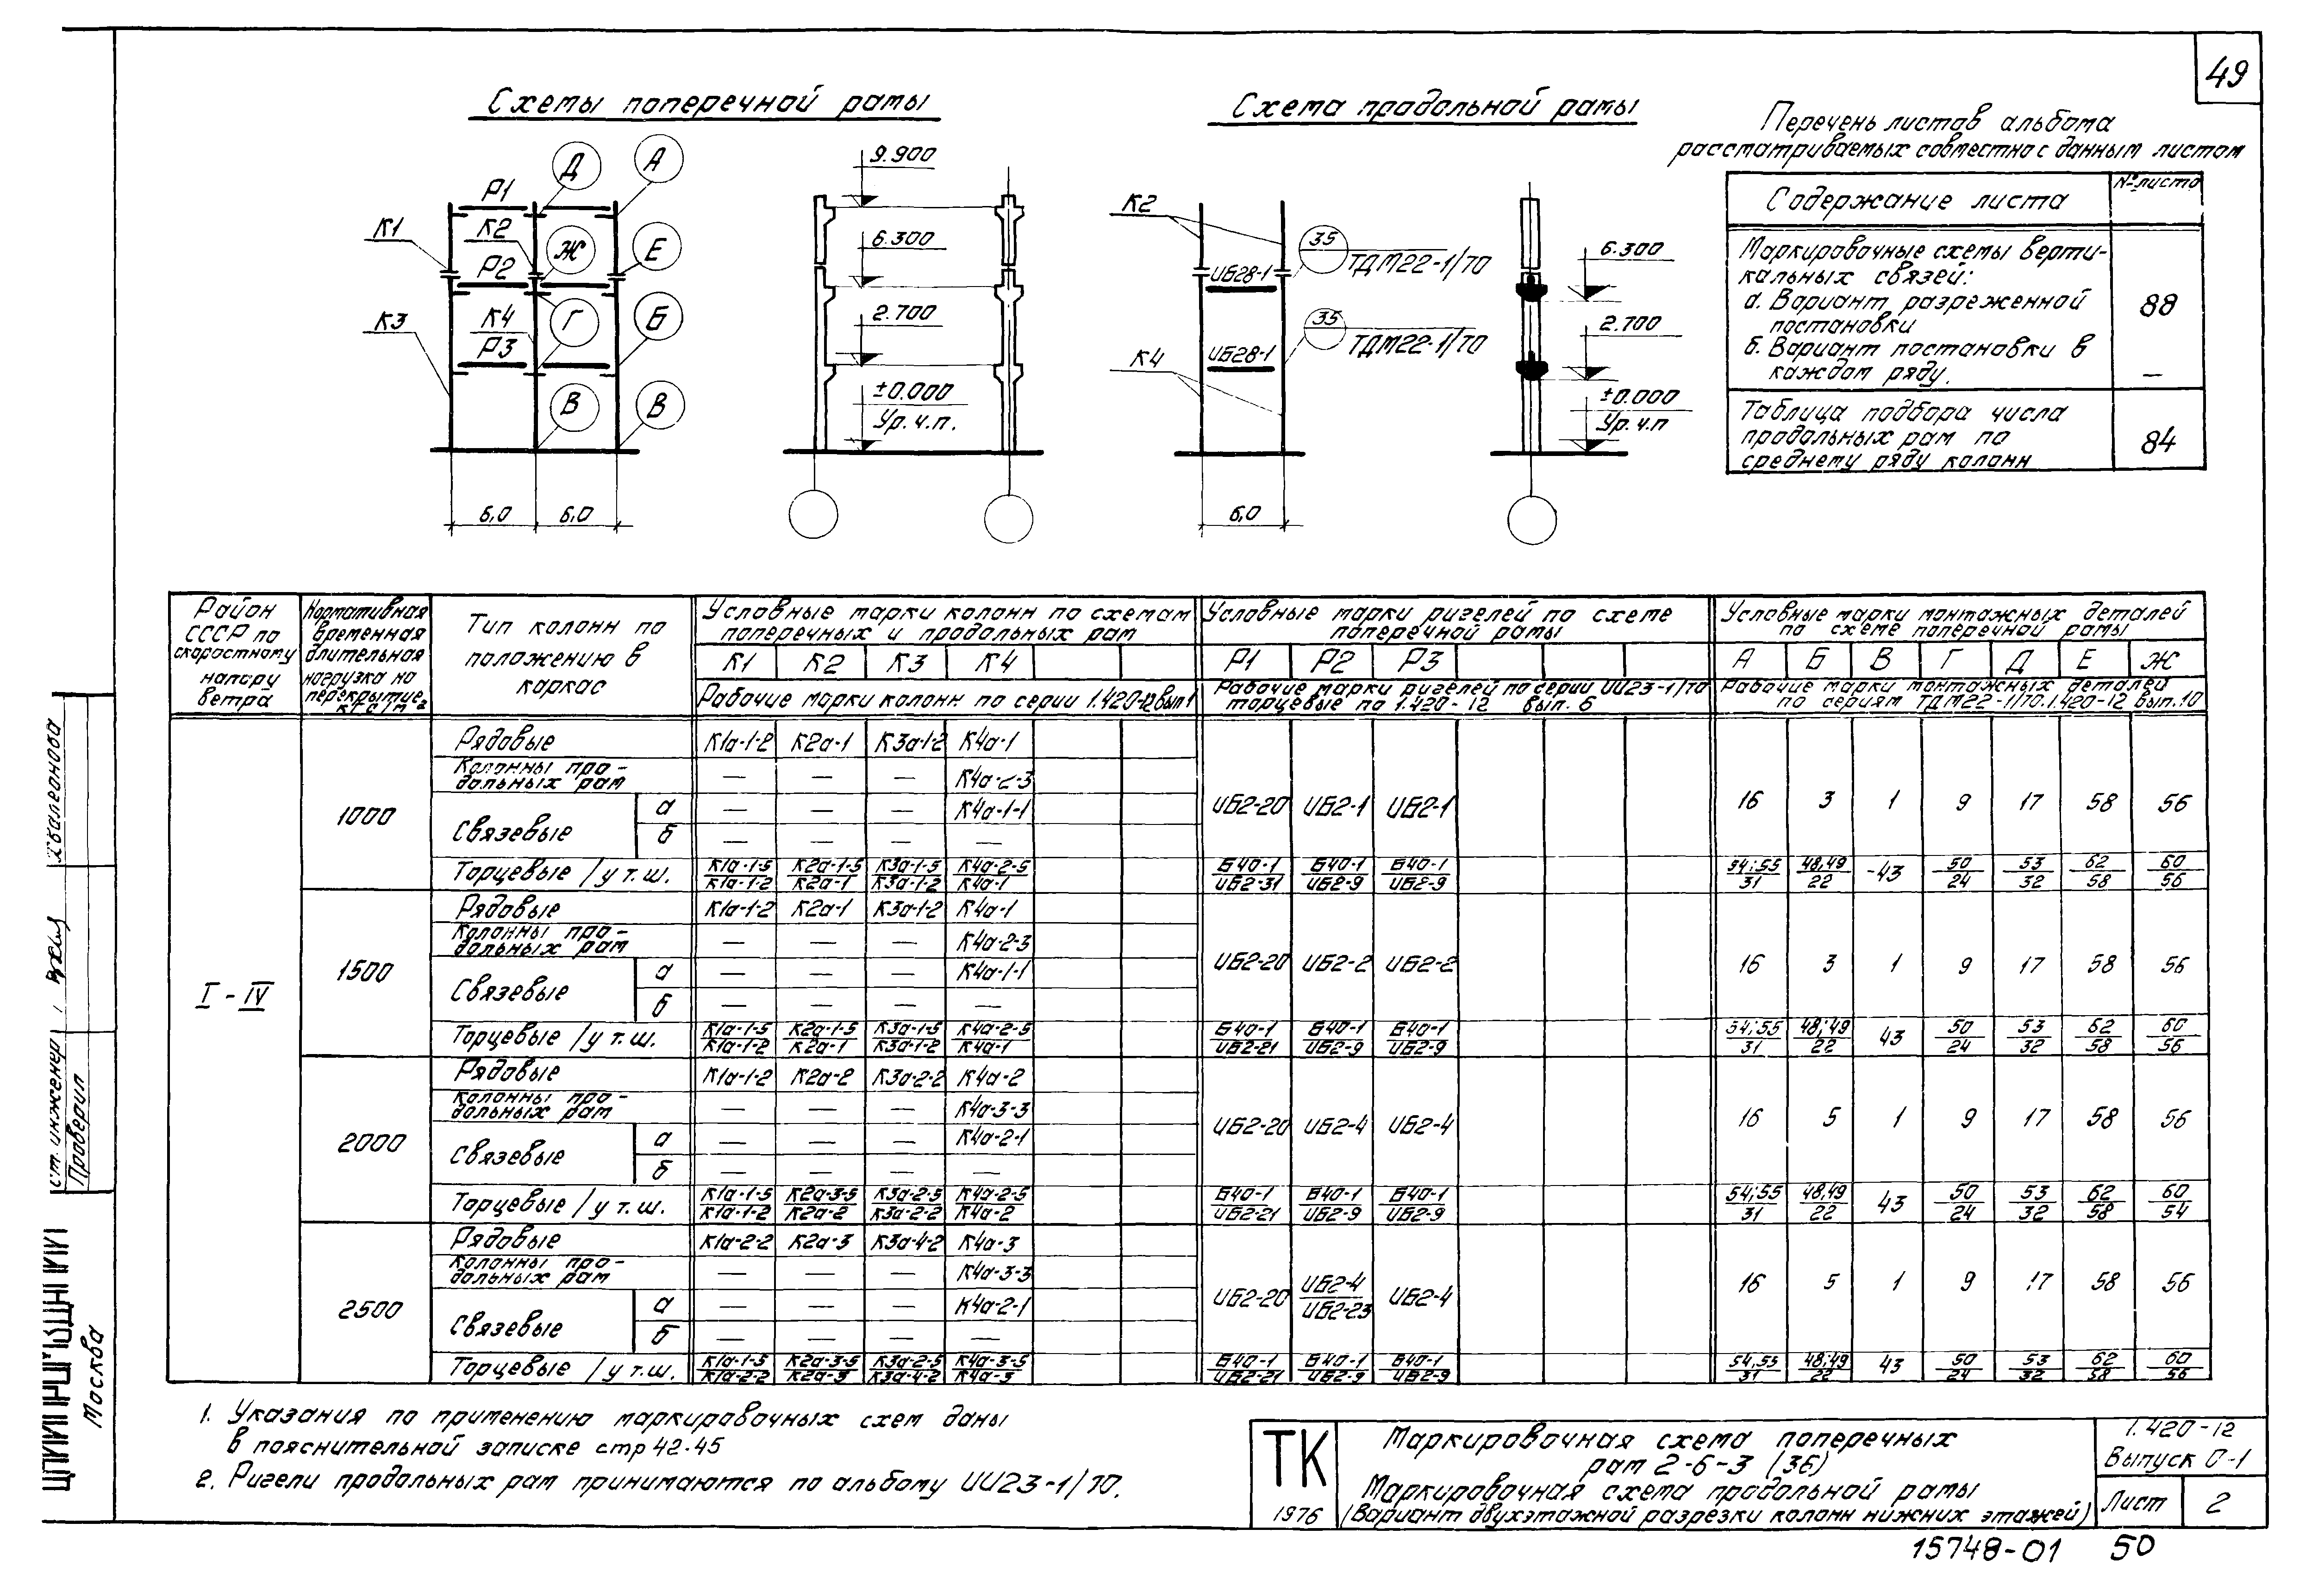 49
Схемы поперечной рамы
Схема продольной рамы
Перечень листов альбома
рассматриваемых совместно с данным листом
Содержание листа
№ листа
Маркировочные схемы верти-
кальных связей:
а. Вариант разреженной
постановки
88
б. Вариант постановки в
каждом ряду.
—
Таблица подбора числа
продольных рам по
среднему ряду колонн
84
Д
А
Р1
К1
К2
Ж
Е
Р2
К3
К4
Г
Б
Р3
В
В
6,0
6,0
9.900
6.300
2.700
±0.000
Ур.ч.п.
К2
35
ТДМ22-1/70
ИБ28-1
35
ТДМ22-1/70
К4
ИБ28-1
6,0
6.300
2.700
±0.000
Ур.ч.п
Район СССР по скоростному напору ветра
Нормативная временная длительная нагрузка на перекрытие кгс/м2
Тип колонн по положению в каркас
Условные марки колонн по схемам поперечных и продольных рам
Условные марки ригелей по схеме поперечной рамы
Условные марки монтажных деталей по схеме поперечной рамы
К1 К2 К3 К4
Р1 Р2 Р3
А Б В Г Д Е Ж
Рабочие марки колонн по серии 1.420-12 вып 1
Рабочие марки ригелей по серии ИИ23-1/70 торцевые по 1.420-12 вып. 6
Рабочие марки монтажных деталей по сериям ТДМ22-1/70. 1.420-12 вып.10
I - IV
1000
Рядовые К1а-1-2 К2а-1 К3а-1-2 К4а-1
Колонны про-дольных рам — — — К4а-2-3
Связевые
а — — — К4а-1-1
б — — — —
ИБ2-20 ИБ2-1 ИБ2-1
16 3 1 9 17 58 56
Торцевые / у т.ш. К1а-1-5/К1а-1-2 К2а-1-5/К2а-1 К3а-1-5/К3а-1-2 К4а-2-5/К4а-1 Б40-1/ИБ2-31 Б40-1/ИБ2-9 Б40-1/ИБ2-9 54;55/31 48,49/22 -43 50/24 53/32 62/58 60/56
1500
Рядовые К1а-1-2 К2а-1 К3а-1-2 К4а-1
Колонны про-дольных рам — — — К4а-2-3
Связевые
а — — — К4а-1-1
б — — — —
ИБ2-20 ИБ2-2 ИБ2-2
16 3 1 9 17 58 56
Торцевые / у т.ш. К1а-1-5/К1а-1-2 К2а-1-5/К2а-1 К3а-1-5/К3а-1-2 К4а-2-5/К4а-1 Б40-1/ИБ2-21 Б40-1/ИБ2-9 Б40-1/ИБ2-9 54;55/31 48;49/22 43 50/24 53/32 62/58 60/56
2000
Рядовые К1а-1-2 К2а-2 К3а-2-2 К4а-2
Колонны про-дольных рам — — — К4а-3-3
Связевые
а — — — К4а-2-1
б — — — —
ИБ2-20 ИБ2-4 ИБ2-4
16 5 1 9 17 58 56
Торцевые / у т.ш. К1а-1-5/К1а-1-2 К2а-3-5/К2а-2 К3а-2-5/К3а-2-2 К4а-2-5/К4а-2 Б40-1/ИБ2-21 Б40-1/ИБ2-9 Б40-1/ИБ2-9 54;55/31 48,49/22 43 50/24 53/32 62/58 60/54
2500
Рядовые К1а-2-2 К2а-3 К3а-4-2 К4а-3
Колонны про-дольных рам — — — К4а-3-3
Связевые
а — — — К4а-2-1
б — — — —
ИБ2-20 ИБ2-4/ИБ2-23 ИБ2-4
16 5 1 9 17 58 56
Торцевые / у т.ш. К1а-1-5/К1а-2-2 К2а-3-5/К2а-3 К3а-2-5/К3а-4-2 К4а-3-5/К4а-3 Б40-1/ИБ2-21 Б40-1/ИБ2-9 Б40-1/ИБ2-9 54,55/31 48;49/22 43 50/24 53/32 62/58 60/56
1. Указания по применению маркировочных схем даны
в пояснительной записке стр 42-45
2. Ригели продольных рам принимаются по альбому ИИ23-1/70.
ТК
1976
Маркировочная схема поперечных
рам 2-6-3 (36)
Маркировочная схема продольной рамы
(Вариант двухэтажной разрезки колонн нижних этажей)
1.420-12
Выпуск 0-1
Лист 2
15748-01 50
ст. инженер
Проверил
Москва